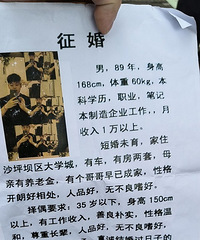 征婚
男，89年，身高
168cm，体重60kg，本
科学历，职业，笔记
本制造企业工作，，月
收入1万以上。
短婚未育，家住
沙坪坝区大学城，有车，有房两套，母
亲有养老金，有个哥哥早已成家，性格
开朗好相处，人品好，无不良嗜好。
择偶要求：35岁以下，身高150cm
以上，有工作收入，善良朴实，性格温
和，尊重长辈，人品好，无不良嗜好。